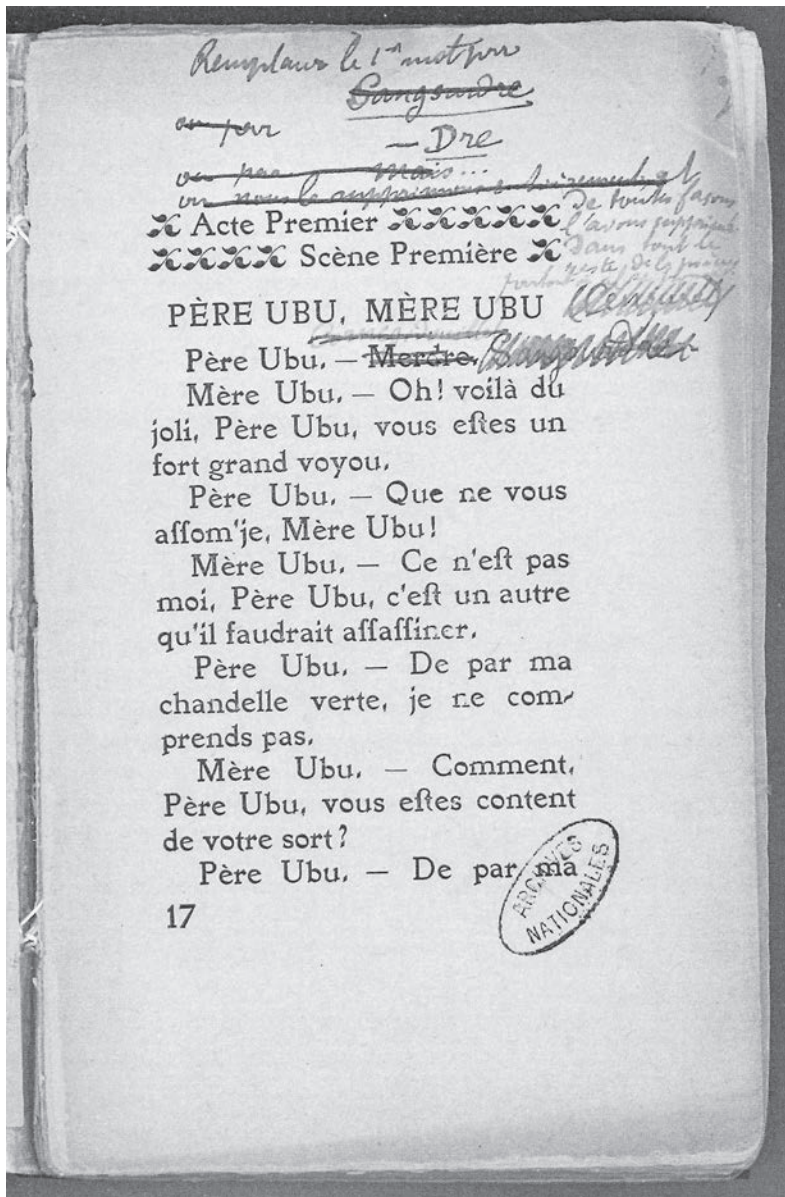 Remplacer le 1er mot par
Sangsurdre
ou par
— Dre
ou par mais...
ou nous le supprimons entièrement, et
de toutes façons
Acte Premier
l'avons supprimé
Scène Première
dans tout le
reste de la pièce
PÈRE UBU, MÈRE UBU
Père Ubu. — Merdre.
Mère Ubu. — Oh! voilà du
joli, Père Ubu, vous eſtes un
fort grand voyou.
Père Ubu. — Que ne vous
aſſom'je, Mère Ubu!
Mère Ubu. — Ce n'eſt pas
moi, Père Ubu, c'eſt un autre
qu'il faudrait aſſaſſiner.
Père Ubu. — De par ma
chandelle verte, je ne com-
prends pas.
Mère Ubu. — Comment,
Père Ubu, vous eſtes content
de votre sort?
Père Ubu. — De par ma
17
ARCHIVES
NATIONALES